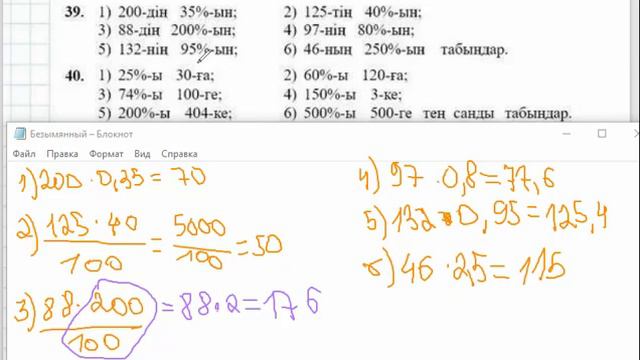 39. 1) 200-дің 35%-ын; 2) 125-тің 40%-ын;
3) 88-дің 200%-ын; 4) 97-нің 80%-ын;
5) 132-нің 95%-ын; 6) 46-ның 250%-ын табыңдар.
40. 1) 25%-ы 30-ға; 2) 60%-ы 120-ға;
3) 74%-ы 100-ге; 4) 150%-ы 3-ке;
5) 200%-ы 404-ке; 6) 500%-ы 500-ге тең санды табыңдар.
Безымянный – Блокнот
Файл Правка Формат Вид Справка
1) 200 · 0,35 = 70
2) 125 · 40 / 100 = 5000 / 100 = 50
3) 88 · 200 / 100 = 88 · 2 = 176
4) 97 · 0,8 = 77,6
5) 132 · 0,95 = 125,4
6) 46 · 2,5 = 115